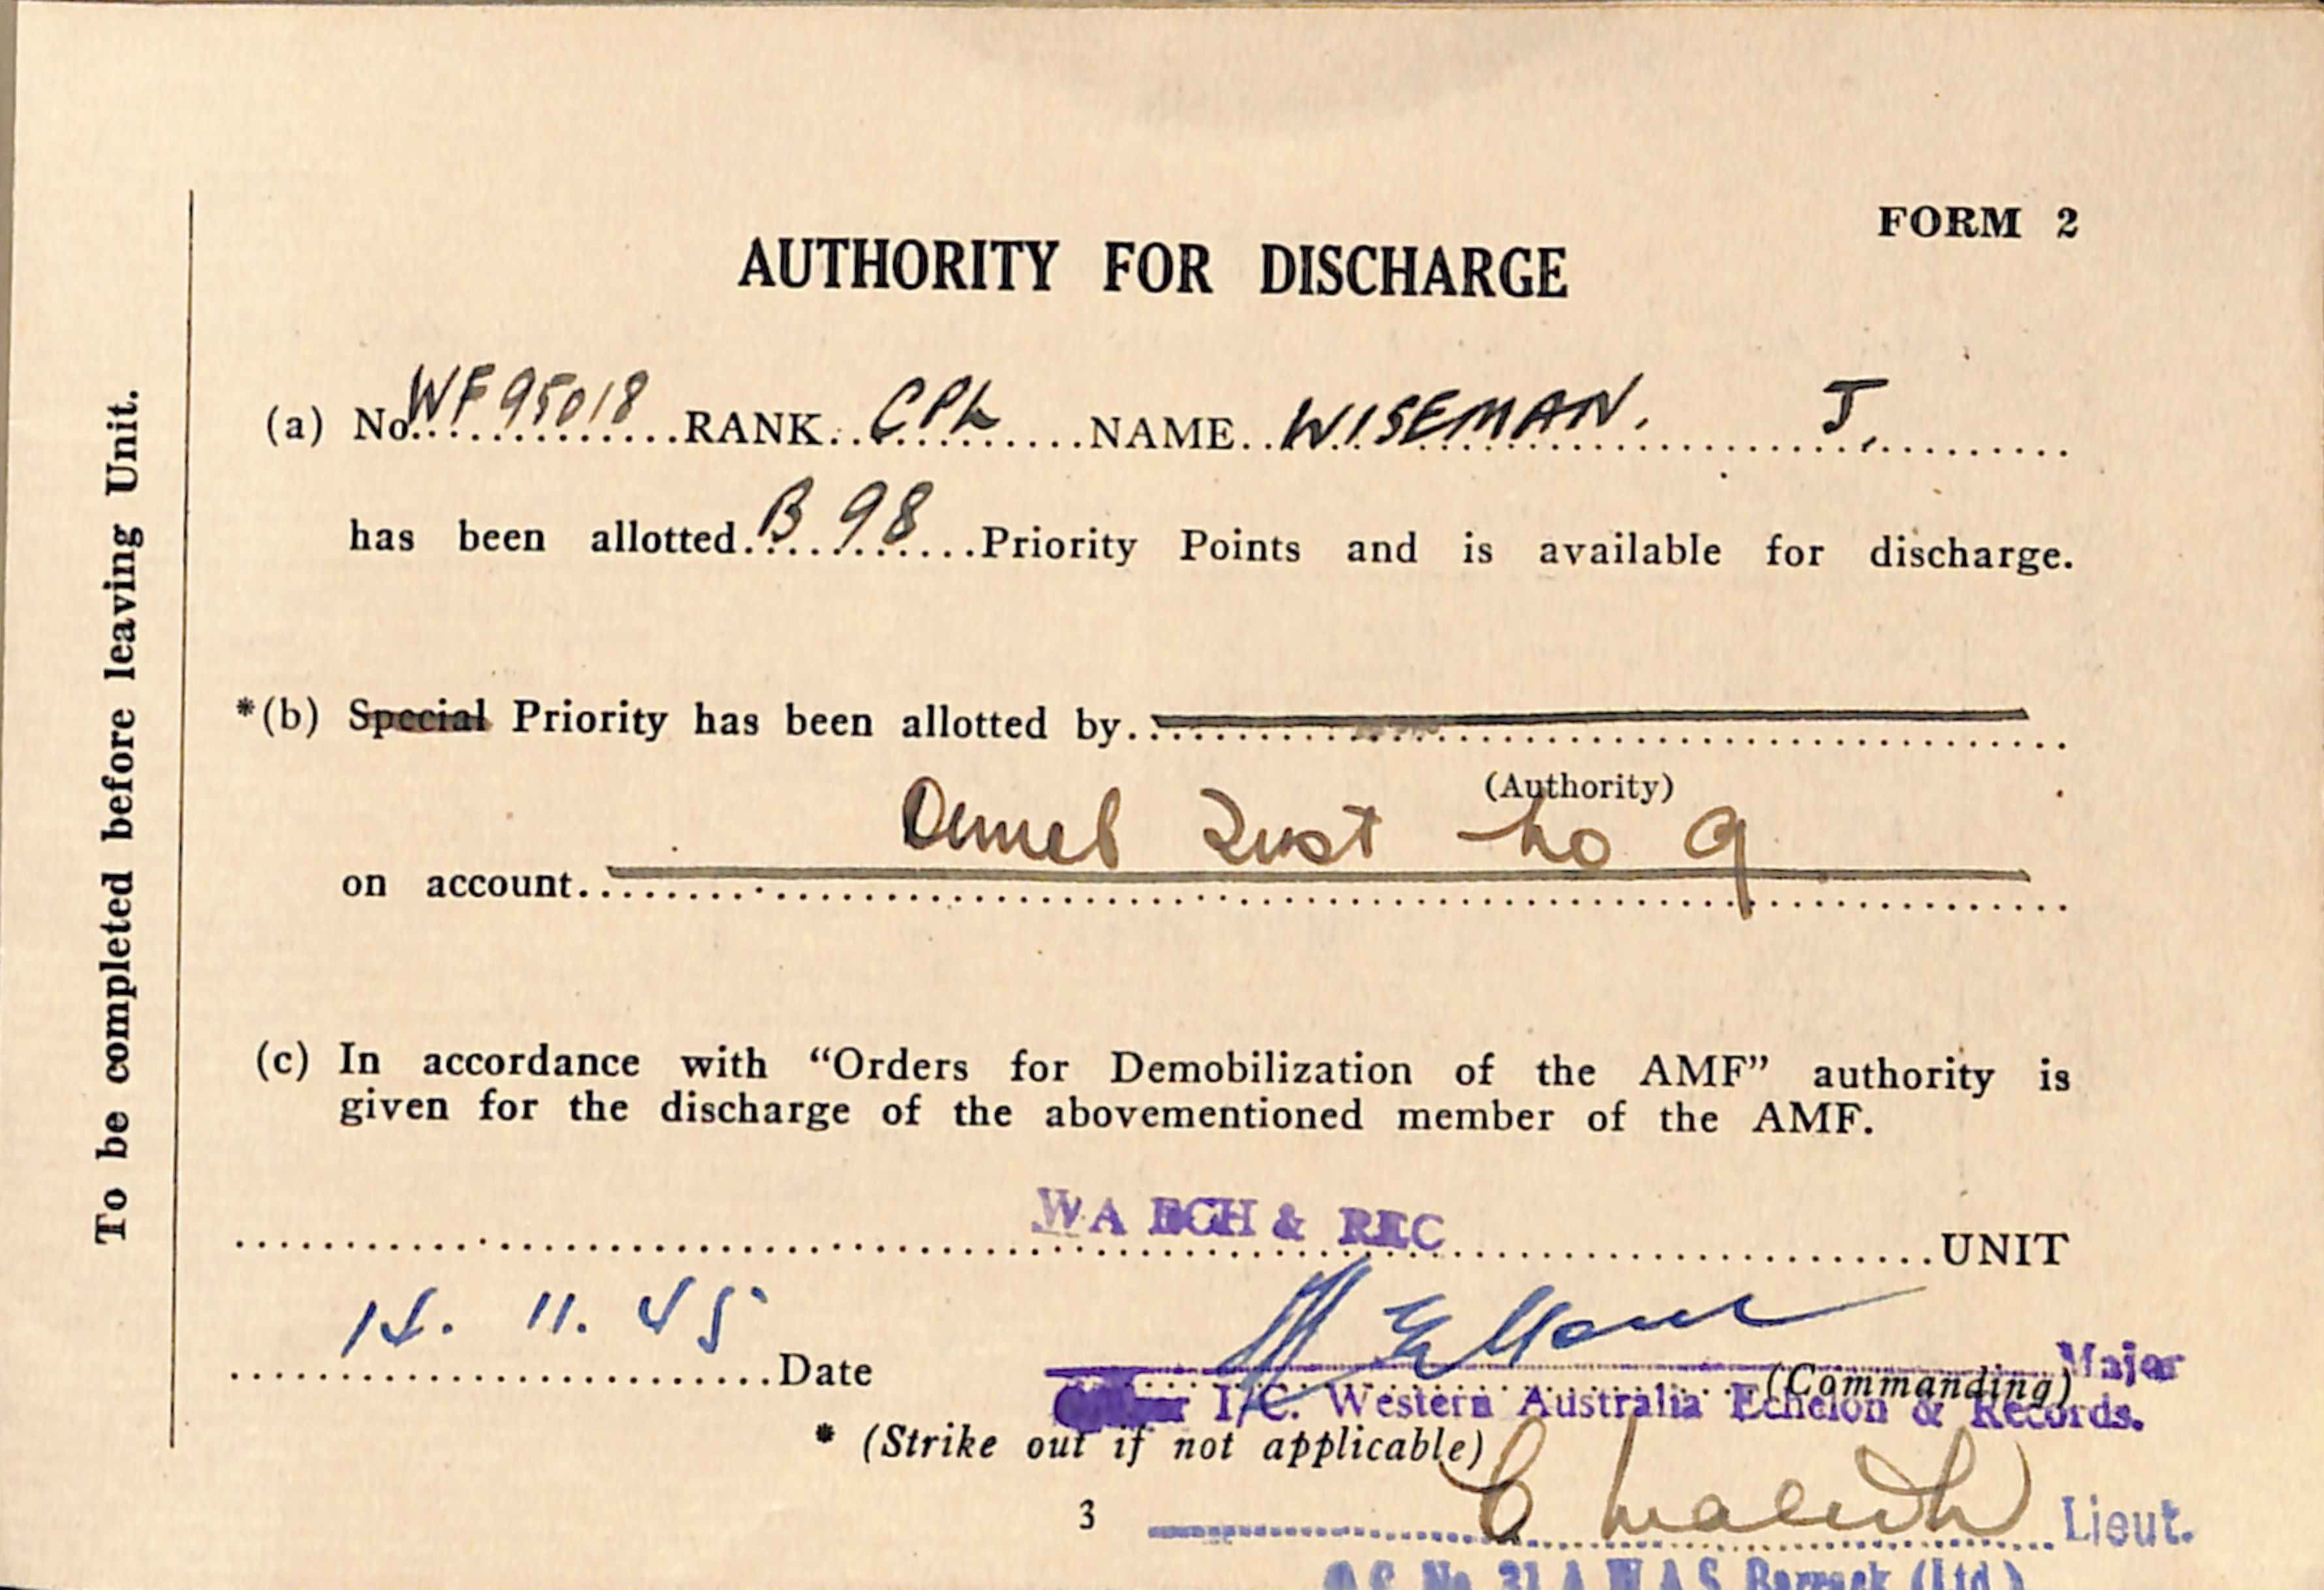 FORM 2
AUTHORITY FOR DISCHARGE
To be completed before leaving Unit.
(a) No. WF95018 RANK CPL NAME WISEMAN. J.
has been allotted B 98 Priority Points and is available for discharge.
*(b) Special Priority has been allotted by
(Authority)
Demob Inst No 9
on account
(c) In accordance with “Orders for Demobilization of the AMF” authority is
given for the discharge of the abovementioned member of the AMF.
WA ECH & REC UNIT
14. 11. 45 Date
Major
(Commanding)
I/C. Western Australia Echelon & Records.
* (Strike out if not applicable)
3
Lieut.
O.C. No. 31 A.W.A.S. Barrack (Ltd.)